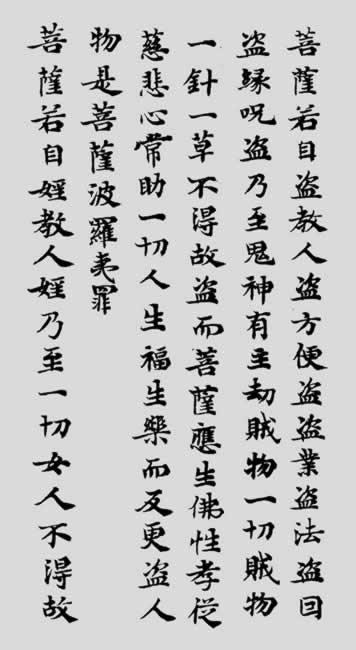 菩薩若自盗教人盗方便盗盗業盗法盗囙
盗縁呪盗乃至鬼神有主劫賊物一切賊物
一針一草不得故盗而菩薩應生佛性孝従
慈悲心常助一切人生福生樂而反更盗人
物是菩薩波羅夷罪
菩薩若自婬教人婬乃至一切女人不得故